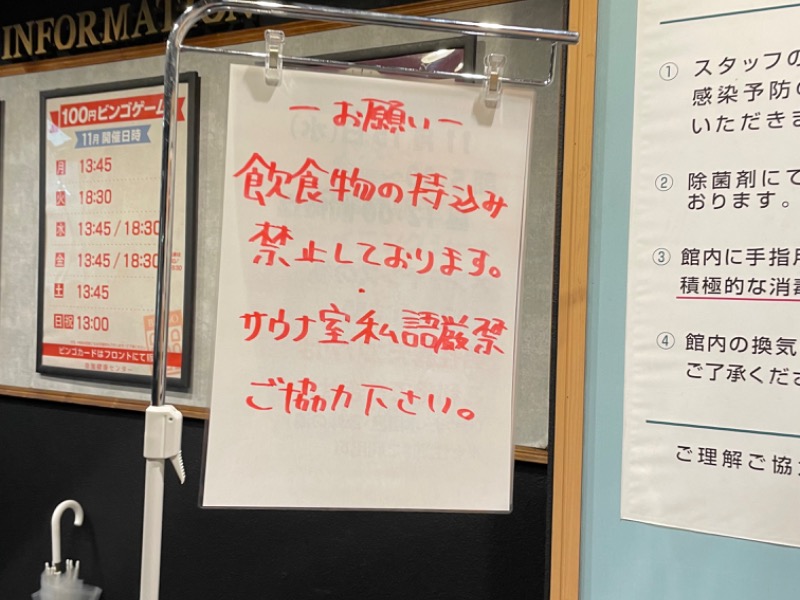 INFORMATION
100円ビンゴゲーム
11月 開催日時
月 13:45
火 18:30
水 13:45 / 18:30
金 13:45 / 18:30
土 13:45
日祝 13:00
ビンゴカードはフロントにて
ーお願いー
飲食物の持込み
禁止しております。
・
サウナ室私語厳禁
ご協力下さい。
① スタッフの
感染予防の
いただきま
② 除菌剤にて
おります。
③ 館内に手指用
積極的な消毒
④ 館内の換気
ご了承くださ
ご理解ご協力